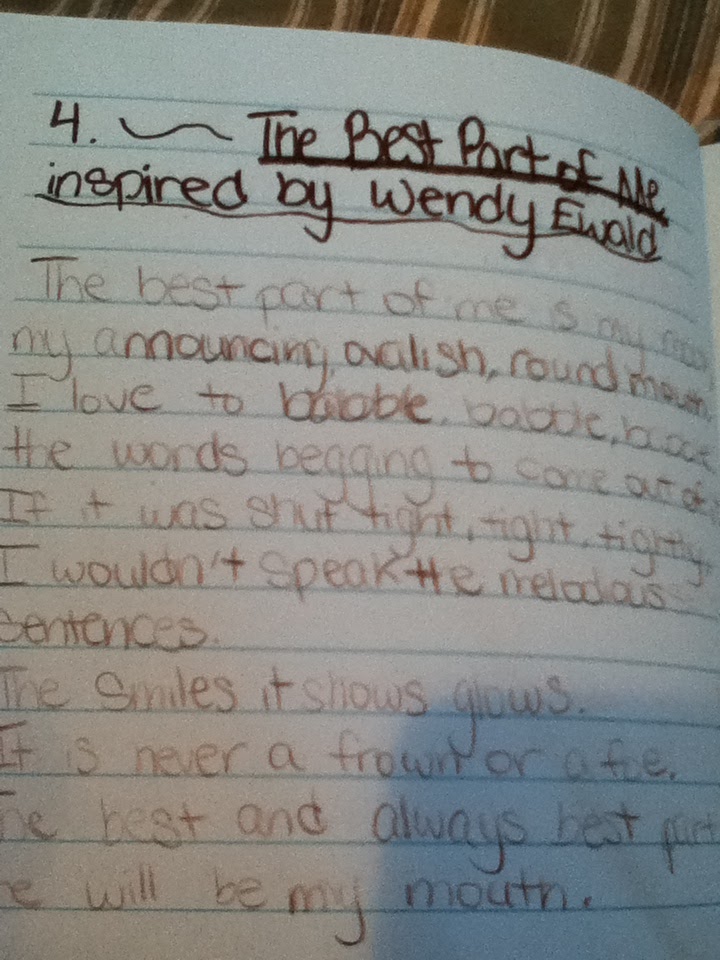 4. The Best Part of Me
inspired by Wendy Ewald
The best part of me is my
my announcing, ovalish, round mouth.
I love to babble, babble, babble
the words begging to come out of
If it was shut tight, tight, tightly,
I wouldn't speak the melodous
sentences.
The smiles it shows glows.
It is never a frown or a foe.
The best and always best part
will be my mouth.